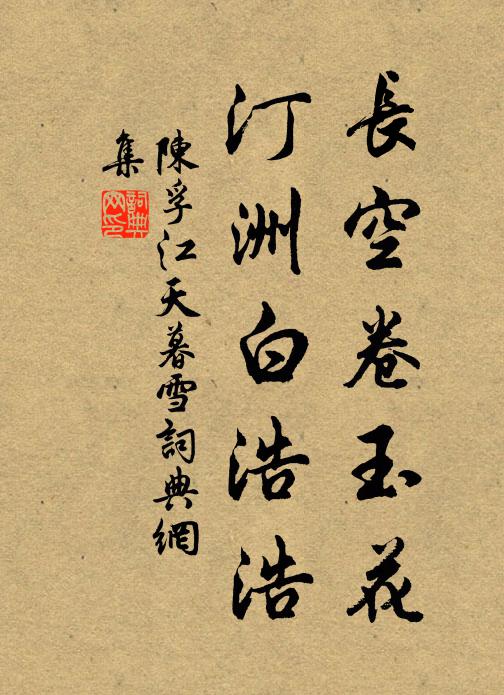 長空卷玉花
汀洲白浩浩
陳孚江天暮雪詞典網
集
詞典网印